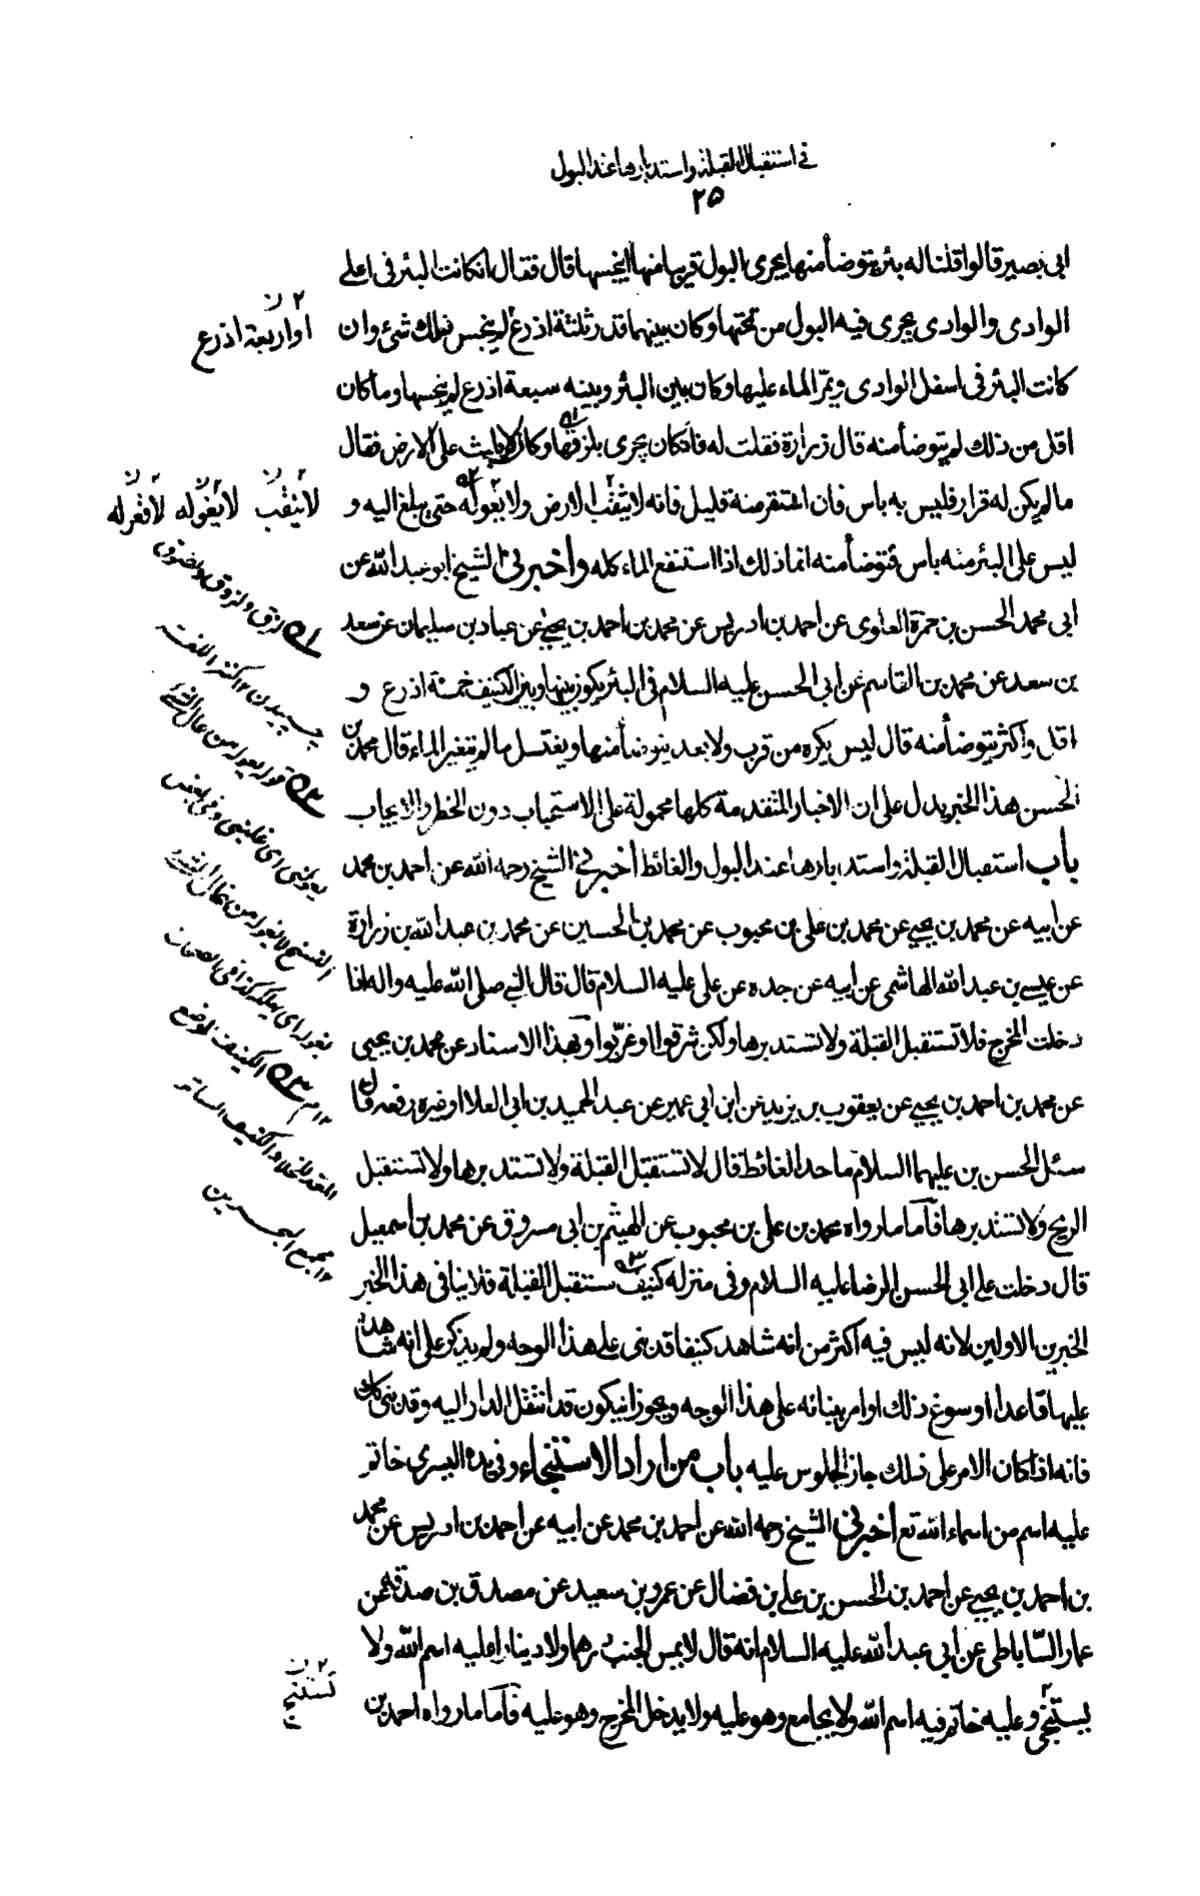 في استقبال القبلة واستدبارها عند البول
٢٥
ابى بصير قالوا قلنا له بئر يتوضأ منها يجرى البول قريبا منها اينجسها قال فقال ان كانت البئر فى اعلى
الوادى والوادى يجرى فيه البول من تحتها وكان بينهما قدر ثلثة اذرع لم ينجس ذلك شئ وان
٢ ن
او اربعة اذرع
كانت البئر فى اسفل الوادى ويمرّ الماء عليها وكان بين البئر وبينه سبعة اذرع لم ينجسها وما كان
اقل من ذلك لم يتوضأ منه قال زرارة فقلت له فان كان يجرى بلزقها وكان لا يلبث على الارض فقال
ما لم يكن له قرار فليس به باس فان استقر منه قليل فانه لا يثقب الارض ولا يغوله حتى يبلغ اليه و
لا ينقب لا يغوله لا قعر له
ليس على البئر منه باس فتوضأ منه انما ذلك اذا استنقع الماء كله واخبرنى الشيخ ابو عبد الله عن
ابى محمد الحسن بن حمزة العلوى عن احمد بن ادريس عن محمد بن احمد بن يحيى عن عباد بن سليمان عن سعد
بن سعد عن محمد بن القاسم عن ابى الحسن عليه السلام فى البئر يكون بينها وبين الكنيف خمسة اذرع و
اقل واكثر يتوضأ منه قال ليس يكره من قرب ولا بعد يتوضأ منها ويغتسل ما لم يتغير الماء قال محمد بن
الحسن هذا الخبر يدل على ان الاخبار المتقدمة كلها محمولة على الاستحباب دون الحظر والايجاب
باب استقبال القبلة واستدبارها عند البول والغائط اخبرنى الشيخ رحمه الله عن احمد بن محمد
عن ابيه عن محمد بن يحيى عن محمد بن على بن محبوب عن محمد بن الحسين عن محمد بن عبد الله بن زرارة
عن عيسى بن عبد الله الهاشمى عن ابيه عن جده عن على عليه السلام قال قال النبى صلى الله عليه واله اذا
دخلت المخرج فلا تستقبل القبلة ولا تستدبرها ولكن شرقوا او غربوا وبهذا الاسناد عن محمد بن يحيى
عن محمد بن احمد بن يحيى عن يعقوب بن يزيد عن ابن ابى عمير عن عبد الحميد بن ابى العلا او غيره رفعه قال
سئل الحسن بن عليهما السلام ما حد الغائط قال لا تستقبل القبلة ولا تستدبرها ولا تستقبل
الريح ولا تستدبرها فأما ما رواه محمد بن على بن محبوب عن الهيثم بن ابى مسروق عن محمد بن اسمعيل
قال دخلت على ابى الحسن الرضا عليه السلام وفى منزله كنيف مستقبل القبلة فلا ينافى هذا الخبر
الخبرين الاولين لانه ليس فيه اكثر من انه شاهد كنيفا قد بنى على هذا الوجه ولم يذكر على انه شاهد
عليها قاعدا او سوغ ذلك او امر ببنائه على هذا الوجه ويجوز ان يكون قد انتقل الدار اليه وقد بنى كك
فانه اذا كان الامر على ذلك جاز الجلوس عليه باب من اراد الاستنجاء وفى يده اليسرى خاتم
عليه اسم من اسماء الله تع اخبرنى الشيخ رحمه الله عن احمد بن محمد عن ابيه عن احمد بن ادريس عن محمد
بن احمد بن يحيى عن احمد بن الحسن بن على بن فضال عن عمرو بن سعيد عن مصدق بن صدقة عن
عمار السّاباطى عن ابى عبد الله عليه السلام انه قال لا يمس الجنب درهما ولا دينارا عليه اسم الله ولا
يستنجى وعليه خاتم فيه اسم الله ولا يجامع وهو عليه ولا يدخل المخرج وهو عليه فأما ما رواه احمد بن
٢ ن
تستنجى